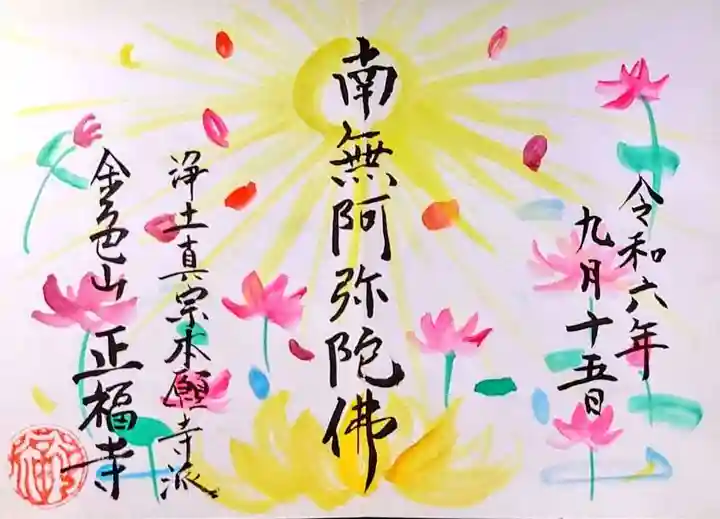 令和六年
九月十五日
南無阿弥陀佛
浄土真宗本願寺派
金色山正福寺